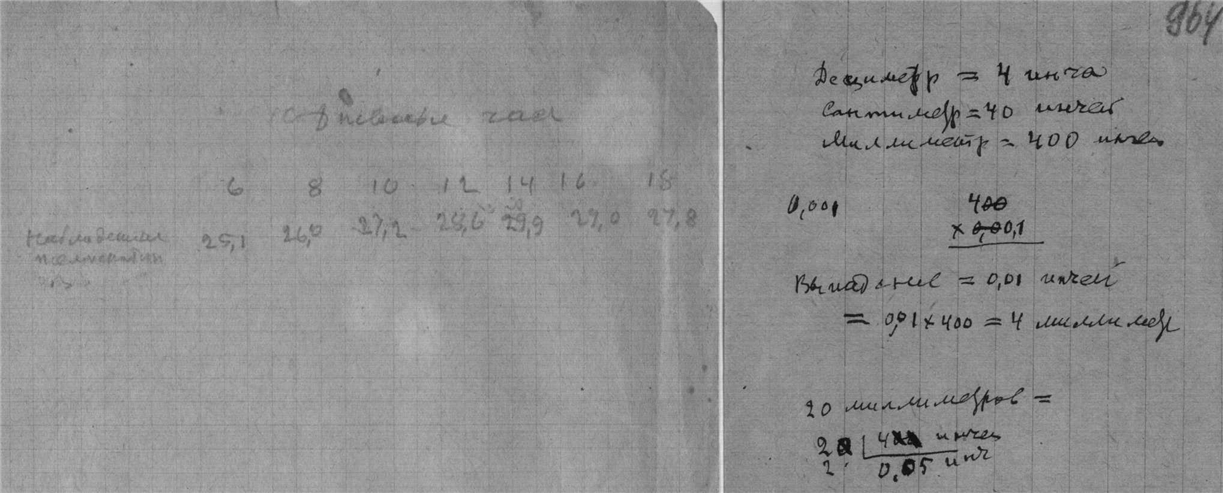 часа
6 8 10 12 14 16 18
25,1 26,0 27,2 28,6 29,9 29,0 27,8
Наблюдения
964
Дециметр = 4 инча
Сантиметр = 40 инчей
Миллиметр = 400 инчей
0,001 400
× 0,00,1
Выпадание = 0,01 инчей
= 0,01 × 400 = 4 миллиметр
20 миллиметров =
20 400 инчей
2 0,05 инч